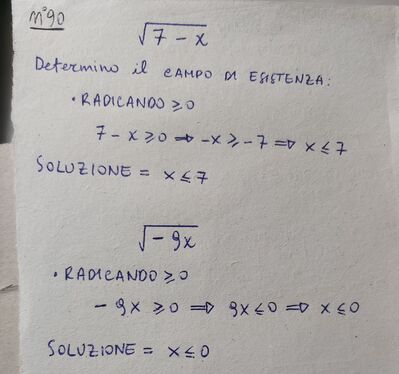 n°90
√7 - x
Determino il CAMPO DI ESISTENZA:
• RADICANDO ≥ 0
7 - x ≥ 0 ⇒ -x ≥ -7 ⇒ x ≤ 7
SOLUZIONE = x ≤ 7
√-9x
• RADICANDO ≥ 0
- 9x ≥ 0 ⇒ 9x ≤ 0 ⇒ x ≤ 0
SOLUZIONE = x ≤ 0